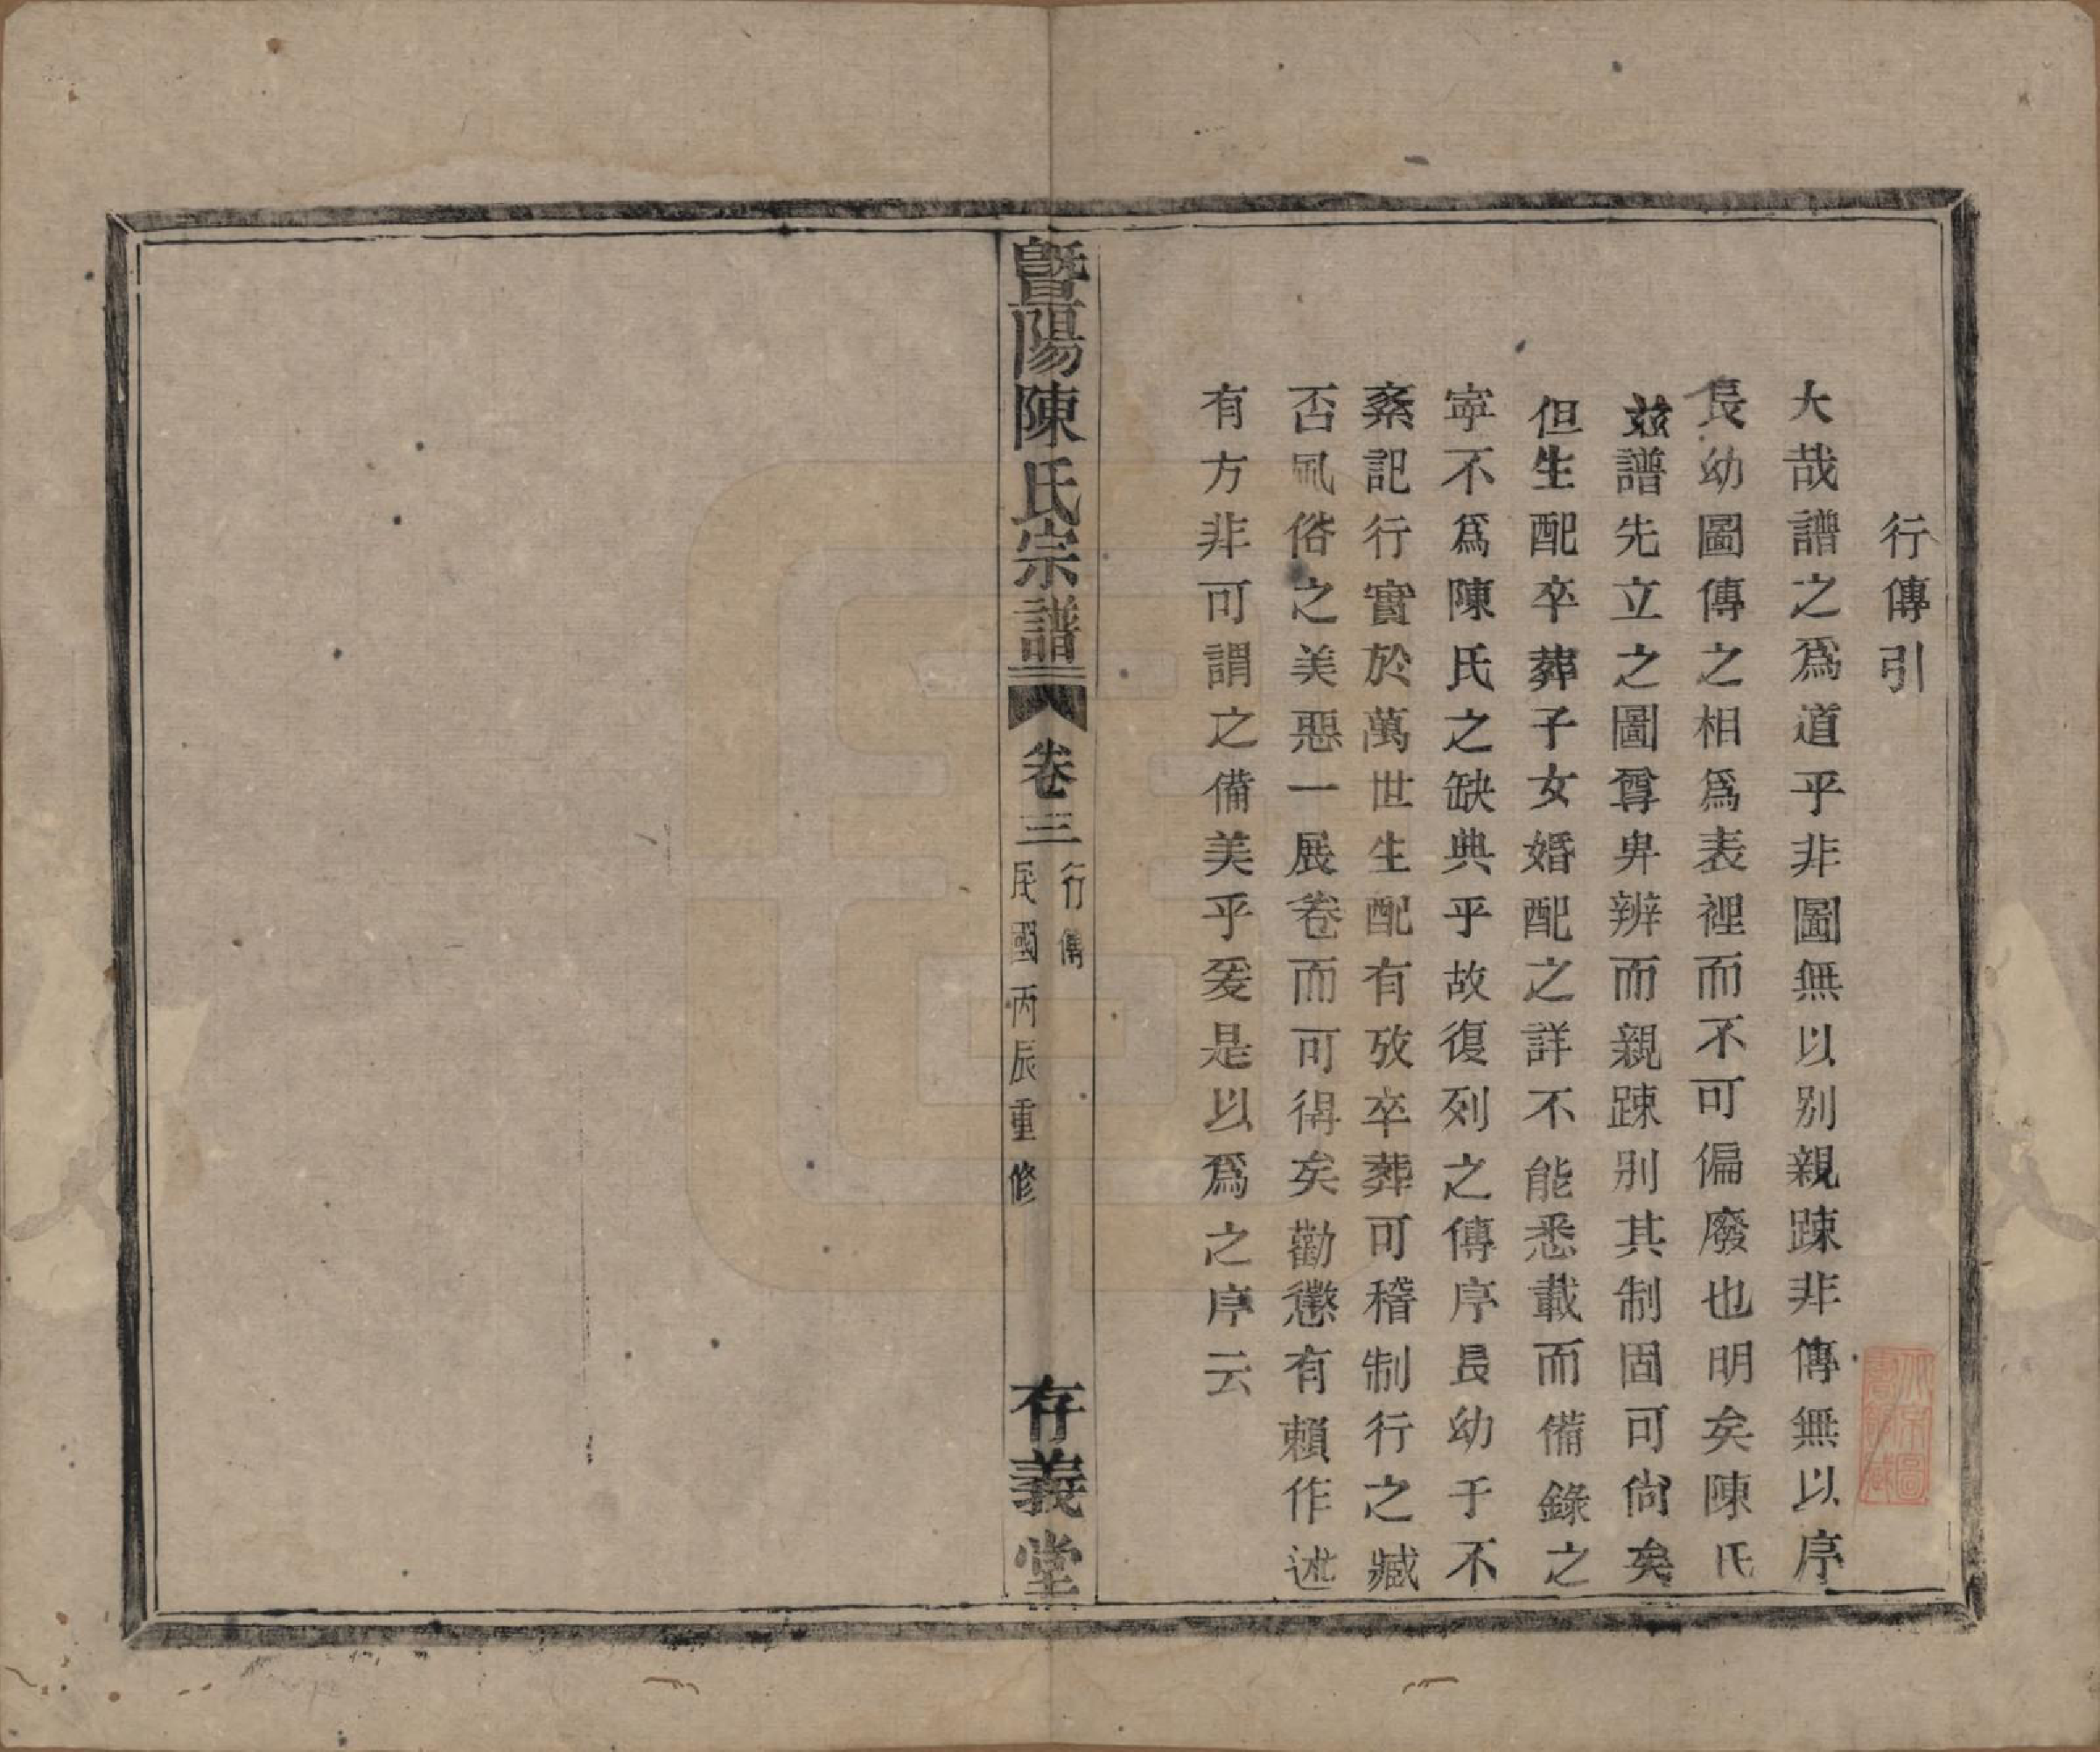 行傳引
大哉譜之爲道乎非圖無以別親踈非傳無以序
長幼圖傳之相爲表裡而不可偏廢也明矣陳氏
玆譜先立之圖尊卑辨而親踈別其制固可尙矣
但生配卒葬子女婚配之詳不能悉載而備錄之
寧不爲陳氏之缺典乎故復列之傳序長幼于不
紊記行實於萬世生配有攷卒葬可稽制行之臧
否風俗之美惡一展卷而可得矣勸懲有賴作述
有方非可謂之備美乎爰是以爲之序云
暨陽陳氏宗譜
卷三
行傳
民國丙辰重修
存義堂